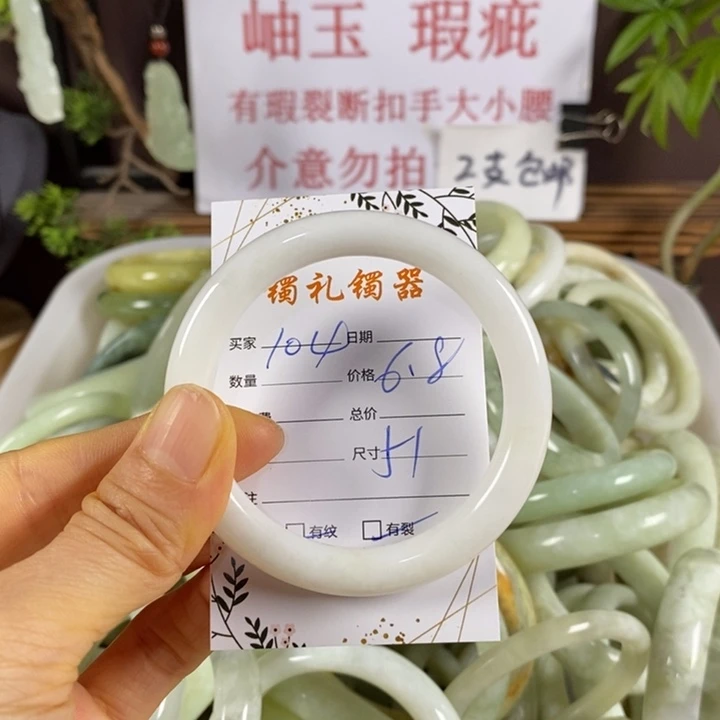 岫玉 瑕疵
有瑕裂断扣手大小腰
介意勿拍 2支包邮
镯礼镯器
买家 104 日期
数量 价格 6.8
费 总价
尺寸 51
注
有纹 有裂